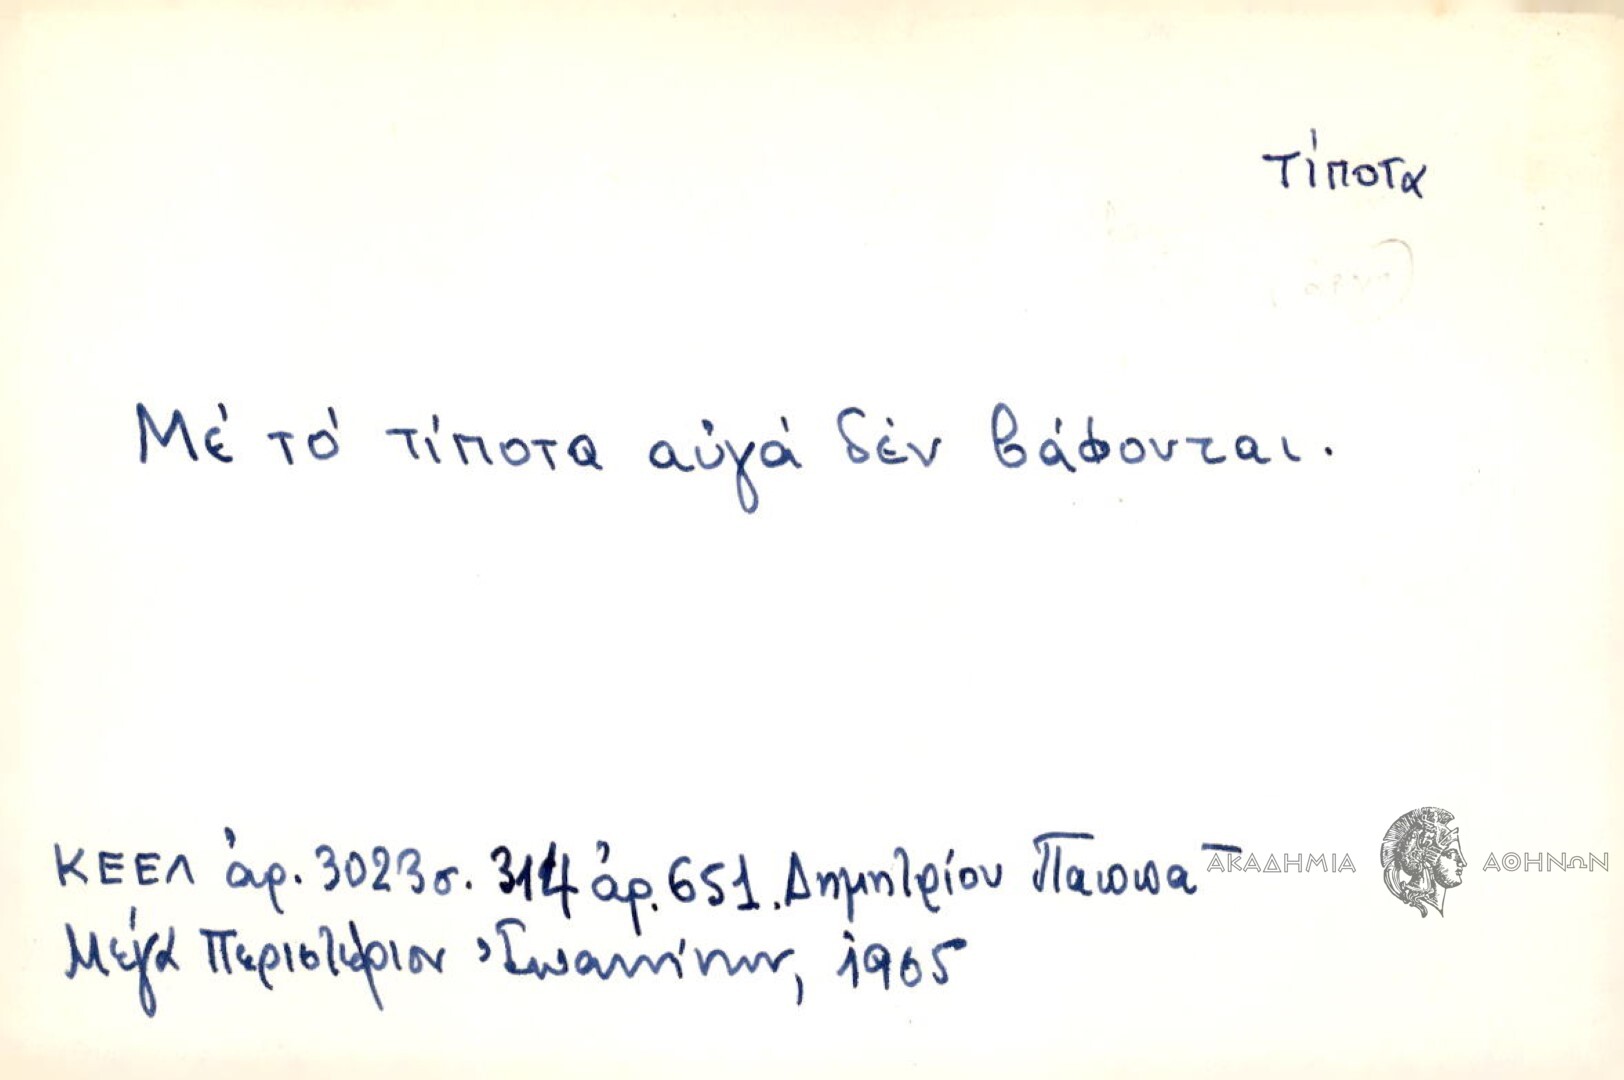 τίποτα
Μέ τό τίποτα αὐγά δέν βάφονται.
ΚΕΕΛ ἀρ. 3023 σ. 314 ἀρ. 651. Δημητρίου Παππᾶ
Μέγα Περιστέριον Ἰωαννίνων, 1965
ΑΚΑΔΗΜΙΑ ΑΘΗΝΩΝ